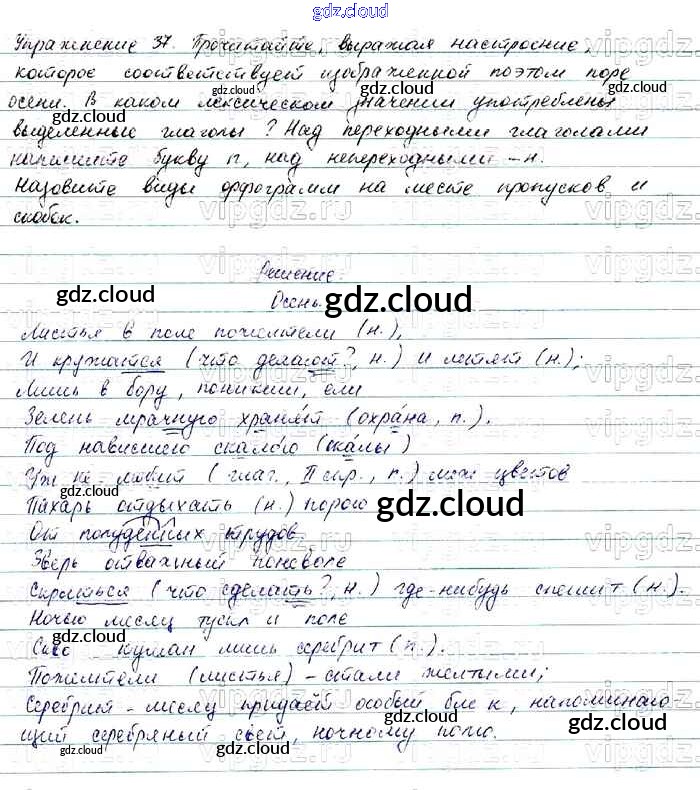 gdz.cloud
Упражнение 37. Прочитайте, выражая настроение,
которое соответствует изображенной поэтом поре
осени. В каком лексическом значении употреблены
выделенные глаголы? Над переходными глаголами
напишите букву п, над непереходными – н.
Назовите виды орфограмм на месте пропусков и
скобок.
Решение.
Осень.
Листья в поле пожелтели (н.),
И кружатся (что делают?, н.) и летят (н.);
Лишь в бору, поникши, ели
Зелень мрачную хранят (охрана, п.).
Под нависшею скалою (скалы)
Уж не любит (глаг., II спр., п.) меж цветов
Пахарь отдыхать (н.) порою
От полуденных трудов.
Зверь отважный поневоле
Скрыться (что сделать?, н.) где-нибудь спешит (н.).
Ночью месяц тускл и поле
Сквозь туман лишь серебрит (п.).
Пожелтели (листья) – стали желтыми;
Серебрит – месяц придаёт особый блеск, напоминаю
щий серебряный свет, ночному полю.
gdz.cloud
gdz.cloud
gdz.cloud
gdz.cloud
gdz.cloud
gdz.cloud
gdz.cloud
gdz.cloud
gdz.cloud
gdz.cloud
gdz.cloud
gdz.cloud